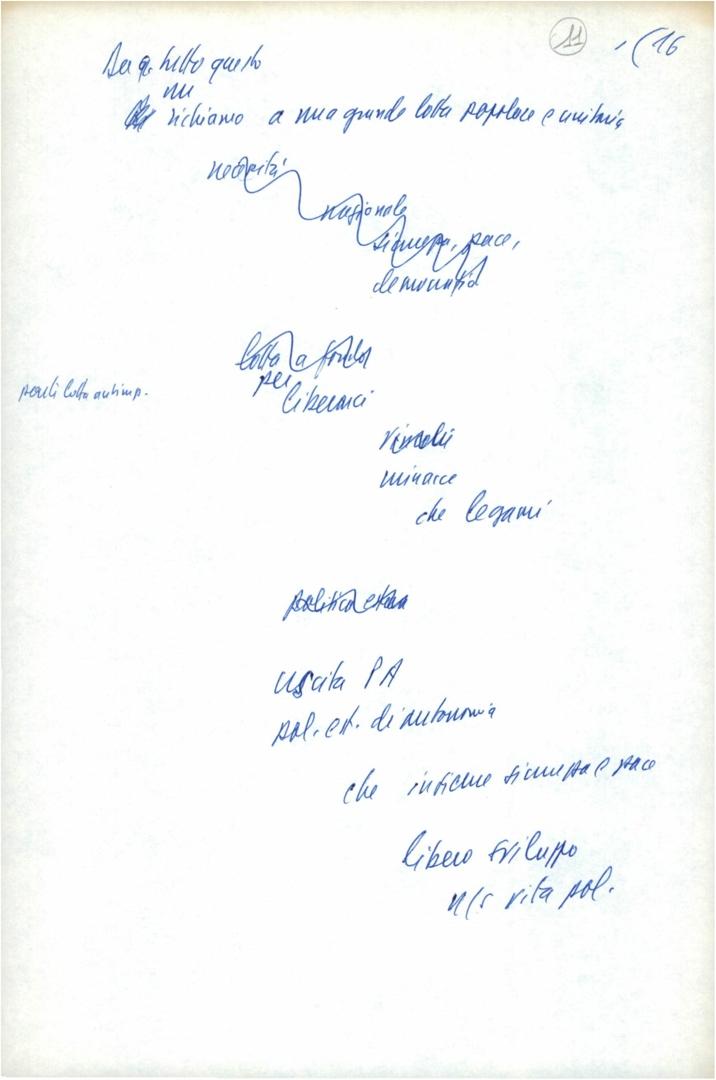 11 16
Da q. tutto questo
un
richiamo a una grande lotta popolare e unitaria
necessità
nazionale
sicurezza, pace,
democrazia
lotta a fondo
per
liberarci
lotta antimp.
vincoli
minacce
che legami
politica estera
uscita PA
pol. est. di autonomia
che insieme sicurezza e pace
libero sviluppo
n/s vita pol.